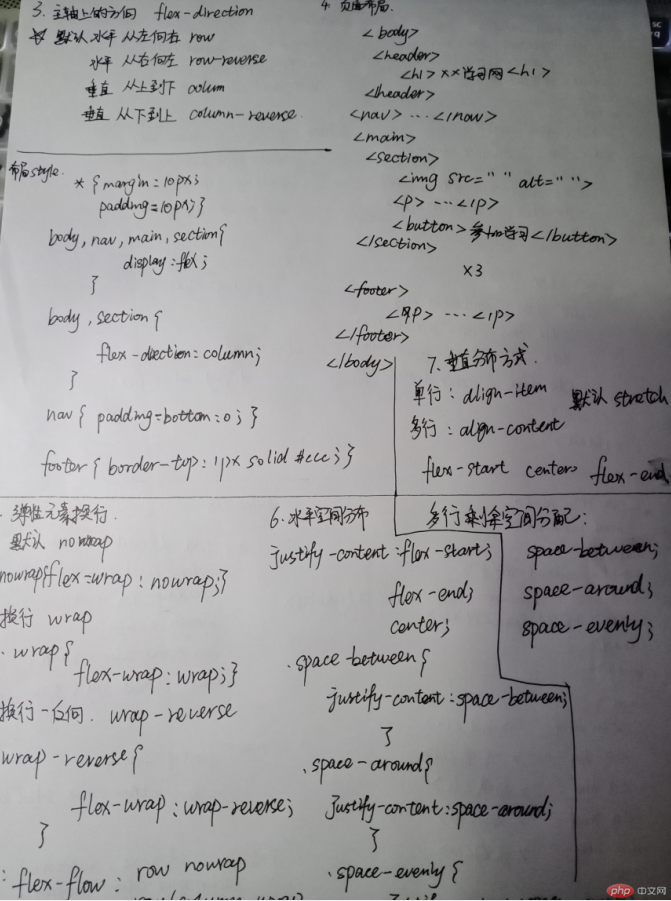 3. 主轴上的方向 flex-direction
默认 水平 从左向右 row
水平 从右向左 row-reverse
垂直 从上到下 colum
垂直 从下到上 column-reverse.
布局style.
* {margin=10px;
padding=10px;}
body, nav, main, section{
display:flex;
}
body, section{
flex-direction: column;
}
nav{ padding-bottom:0; }
footer{ border-top: 1px solid #ccc; }
4. 页面布局.
<body>
<header>
<h1> xx学习网 <h1>
</header>
<nav> ... </nav>
<main>
<section>
<img src=" " alt=" ">
<p> ... </p>
<button> 参加学习 </button>
</section>
x3
<footer>
<p> ... </p>
</footer>
</body>
7. 垂直分布方式.
单行: align-item 默认 stretch
多行: align-content
flex-start center flex-end
弹性元素换行.
默认 nowrap
nowrap{flex-wrap: nowrap;}
换行 wrap
. wrap{
flex-wrap: wrap;}
换行-反向. wrap-reverse
wrap-reverse{
flex-wrap: wrap-reverse;
}
: flex-flow: row nowrap
6. 水平空间分布
justify-content: flex-start;
flex-end;
center;
.space-between{
justify-content: space-between;
}
.space-around{
justify-content: space-around;
}
.space-evenly{
多行剩余空间分配:
space-between;
space-around;
space-evenly;
php 中文网